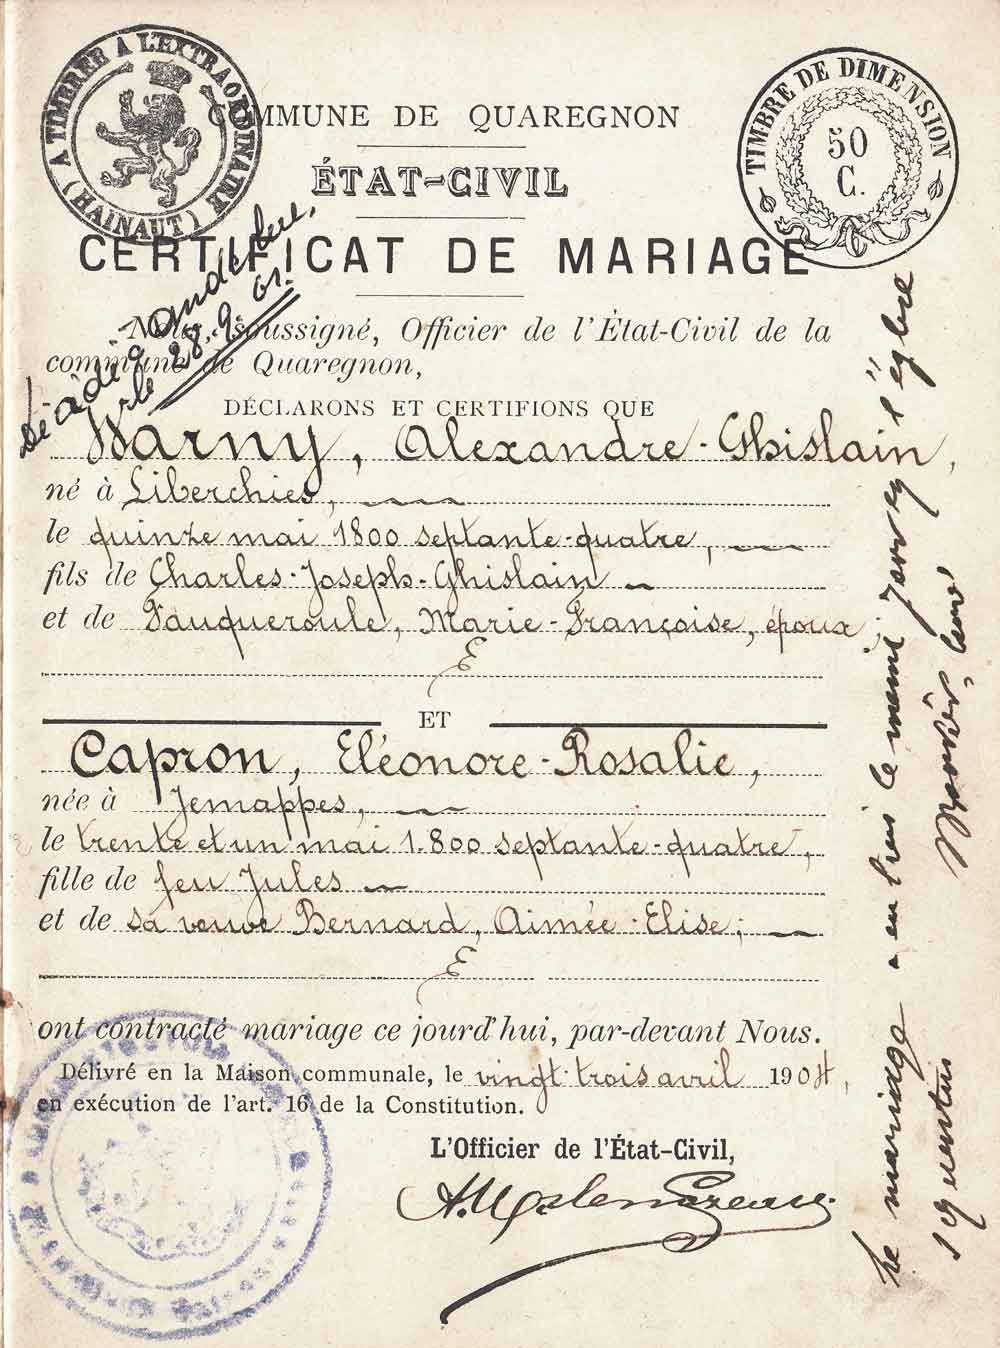 A TIMBRER A L'EXTRAORDINAIRE
(HAINAUT)
TIMBRE DE DIMENSION
50
C.
COMMUNE DE QUAREGNON
ÉTAT-CIVIL
CERTIFICAT DE MARIAGE
le 28.9.61.
Nous soussigné, Officier de l'État-Civil de la
commune de Quaregnon,
DÉCLARONS ET CERTIFIONS QUE
Warny, Alexandre-Ghislain,
né à Liberchies,
le quinze mai 1800 septante-quatre,
fils de Charles-Joseph-Ghislain
et de Fauqueroule, Marie-Françoise, époux;
ET
Capron, Eléonore-Rosalie,
née à Jemappes,
le trente et un mai 1.800 septante-quatre,
fille de feu Jules
et de sa veuve Bernard, Aimée-Elise;
ont contracté mariage ce jourd'hui, par-devant Nous.
Délivré en la Maison communale, le vingt-trois avril 1904,
en exécution de l'art. 16 de la Constitution.
L'Officier de l'État-Civil,
Le mariage a eu lieu le même jour en l'église